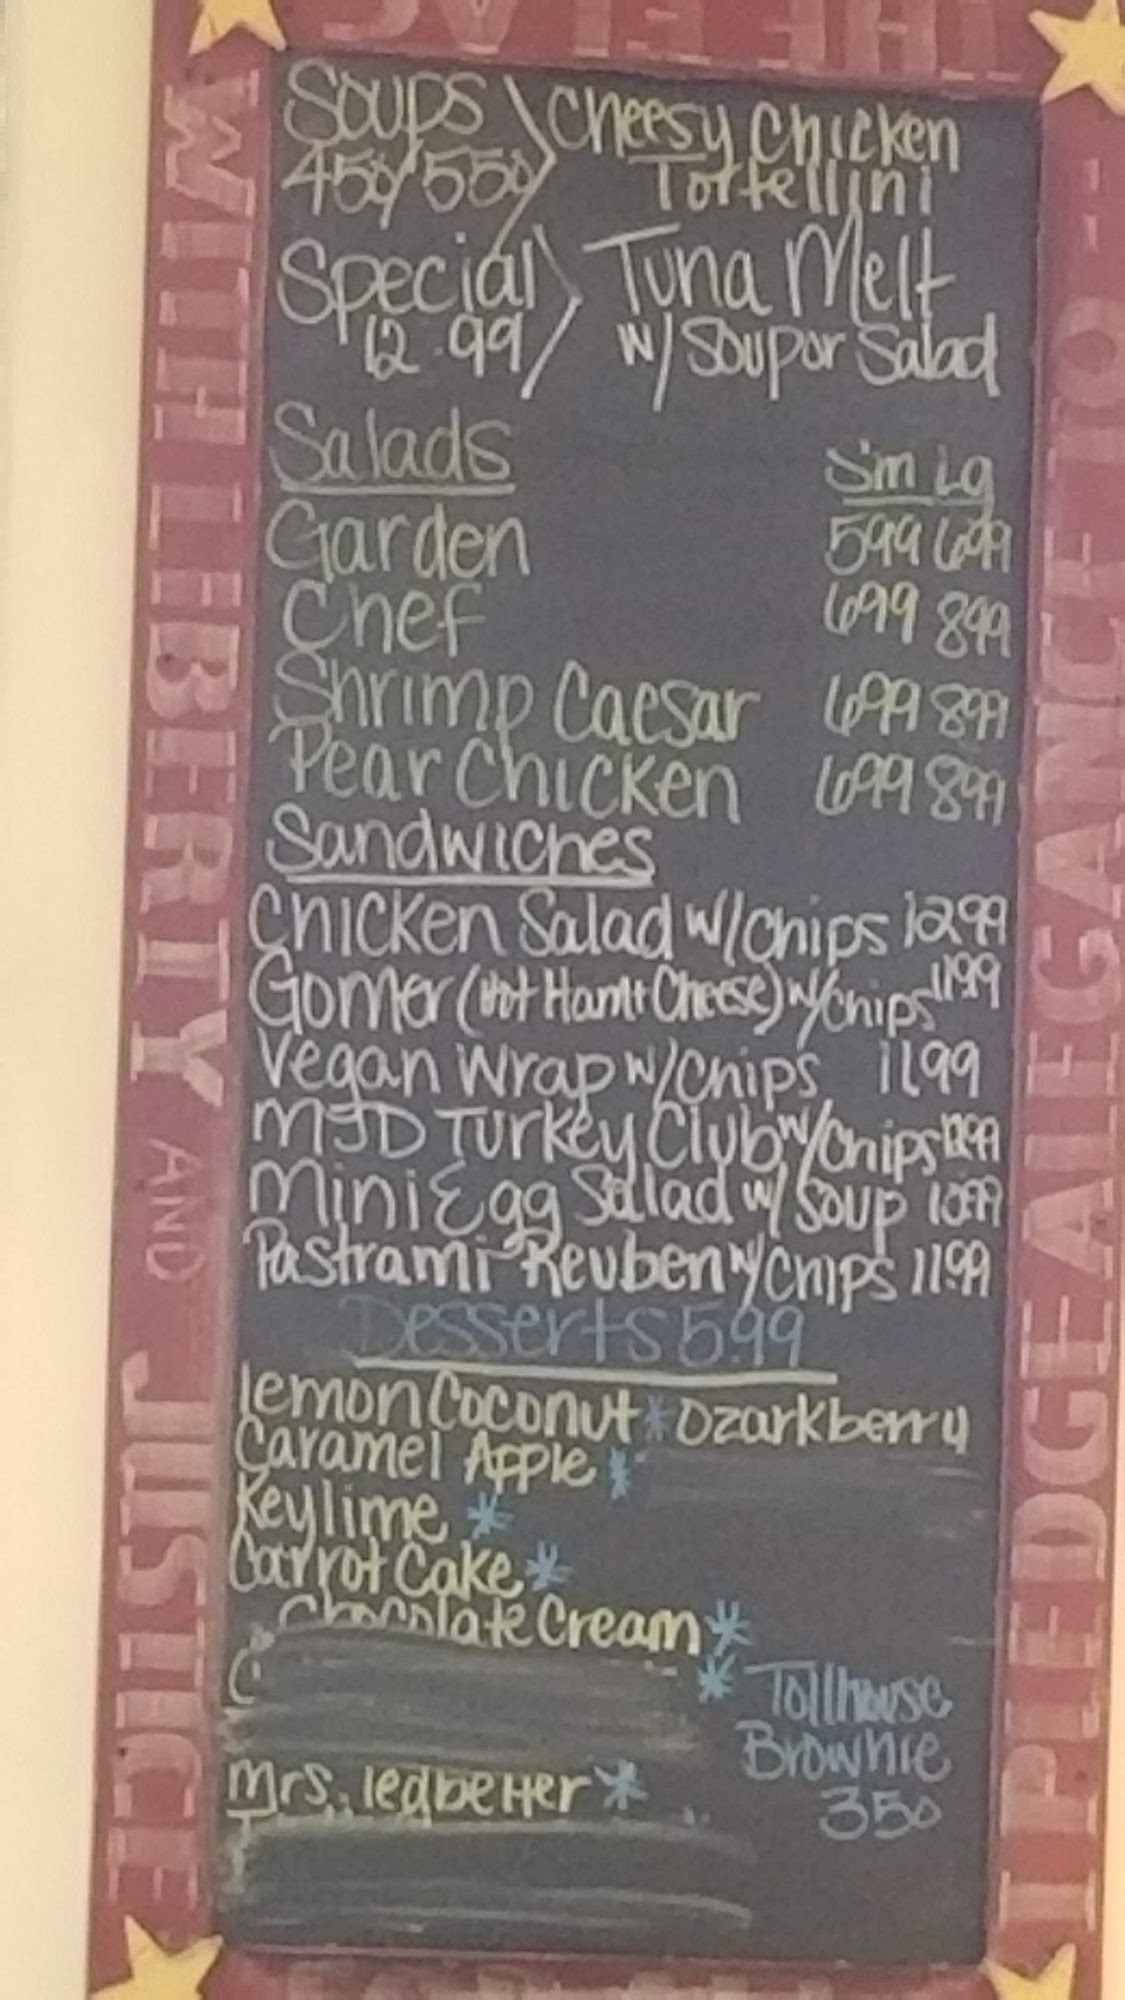 Soups Cheesy Chicken
450/550 Tortellini
Special Tuna Melt
12.99 w/ Soup or Salad
Salads Sm Lg
Garden 599 699
Chef 699 899
Shrimp Caesar 699 899
Pear Chicken 699 899
Sandwiches
Chicken Salad w/Chips 1299
Gomer (Hot Ham + Cheese) w/chips 1199
Vegan Wrap w/Chips 1199
MJD Turkey Club w/Chips 1299
Mini Egg Salad w/ Soup 1099
Pastrami Reuben w/Chips 11.99
Desserts 5.99
Lemon Coconut * Ozarkberry
Caramel Apple *
Keylime *
Carrot Cake *
Chocolate Cream *
* Tollhouse
Brownie
Mrs. ledbetter * 350
WITH LIBERTY AND JUSTICE
I PLEDGE ALLEGIANCE TO
THE FLAG